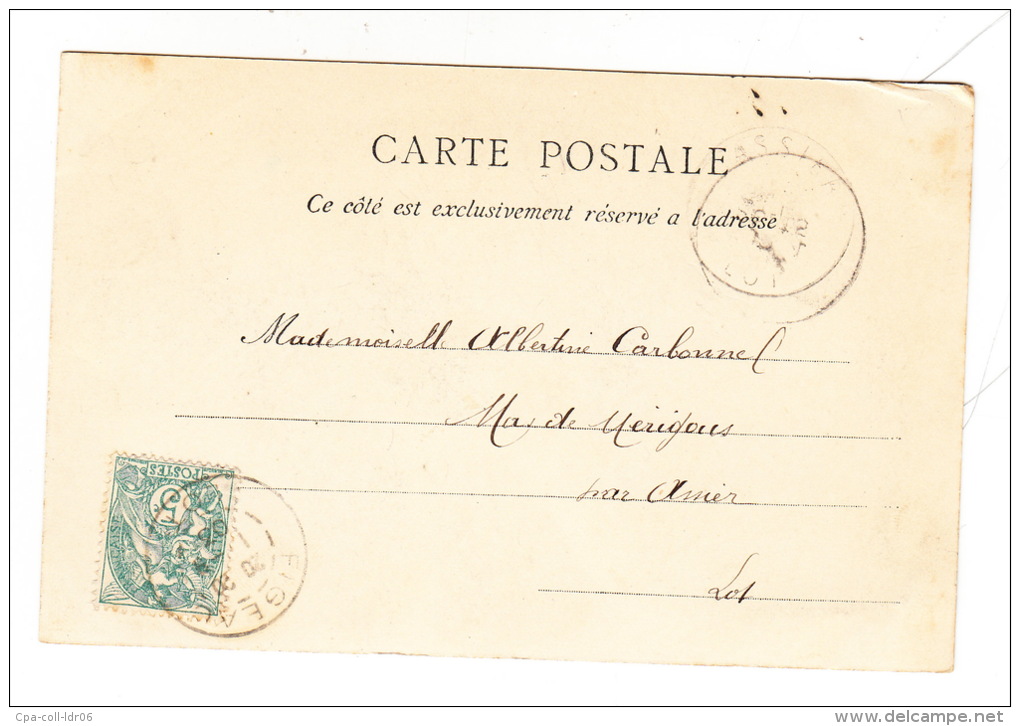 CARTE POSTALE
Ce côté est exclusivement réservé a l'adresse
ASSIER
LOT
Mademoiselle Albertine Carbonnel
Mas de Mérigous
par Assier
Lot
POSTES
5
FIGEAC
Cpa-coll-ldr06
www.delcampe.net